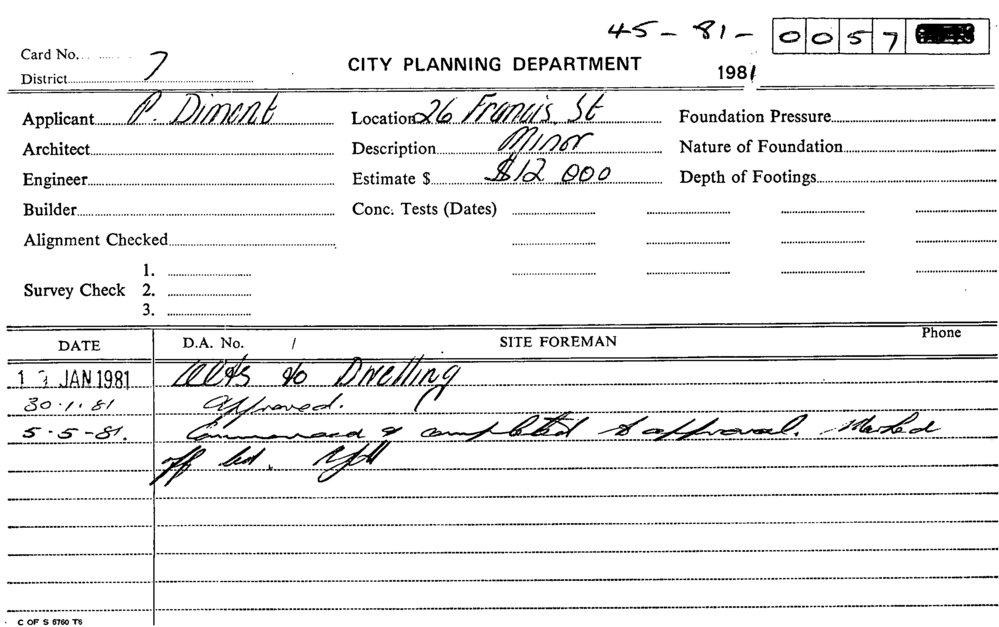 45 - 81 - 0057
Card No.
District 7
CITY PLANNING DEPARTMENT
1981
Applicant P. Diment
Location 26 Francis St
Foundation Pressure
Architect
Description Minor
Nature of Foundation
Engineer
Estimate $ $12 000
Depth of Footings
Builder
Conc. Tests (Dates)
Alignment Checked
Survey Check
1.
2.
3.
DATE
D.A. No. /
SITE FOREMAN
Phone
JAN 1981 to Dwelling
30.1.81 Approved.
5-5-81. Commenced & completed to approval. Marked
off
C OF S 6760 T6